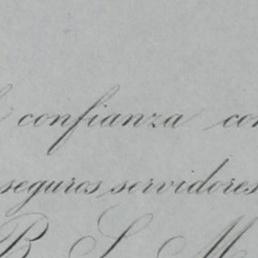 confianza co
seguros servidores
B S M